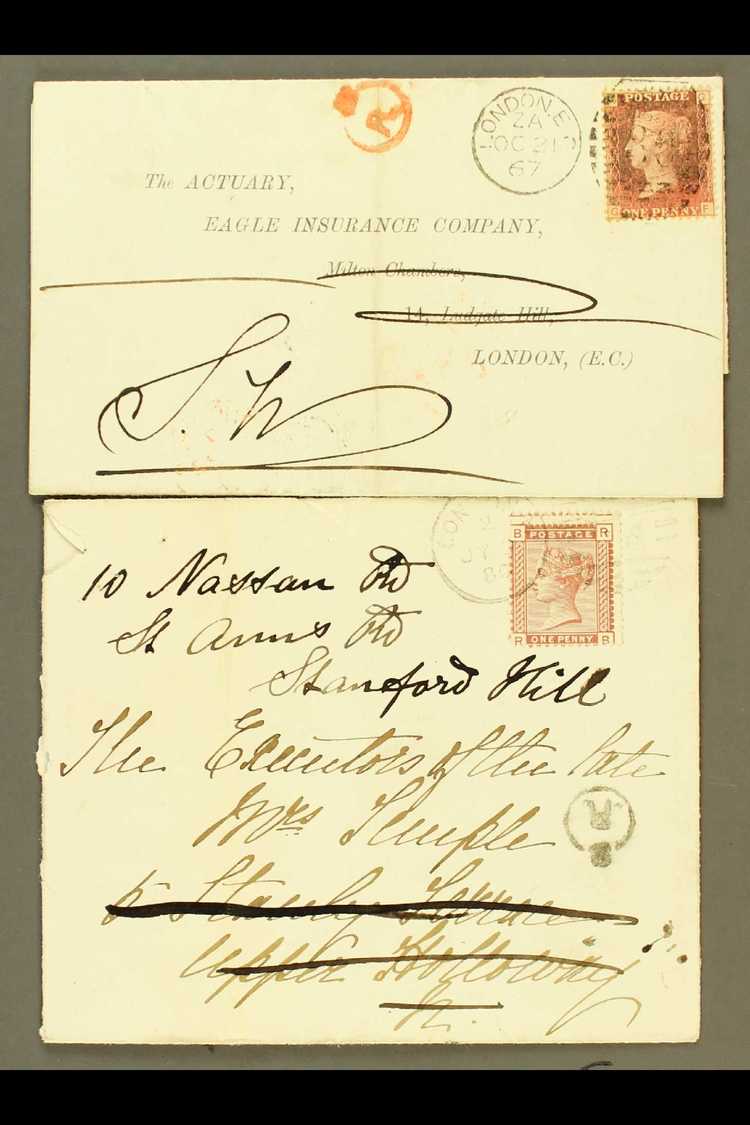 R
LONDON.E.C
ZA
OC 21
67
POSTAGE
ONE PENNY
The ACTUARY,
EAGLE INSURANCE COMPANY,
Milton Chambers,
14, Ludgate Hill,
LONDON, (E.C.)
S.W
B POSTAGE R
R ONE PENNY B
10 Nassau Rd
St Anns Rd
Stamford Hill
The Executors of the late
Mrs Temple
R
5 Stanley Terrace
Upper Holloway
N.